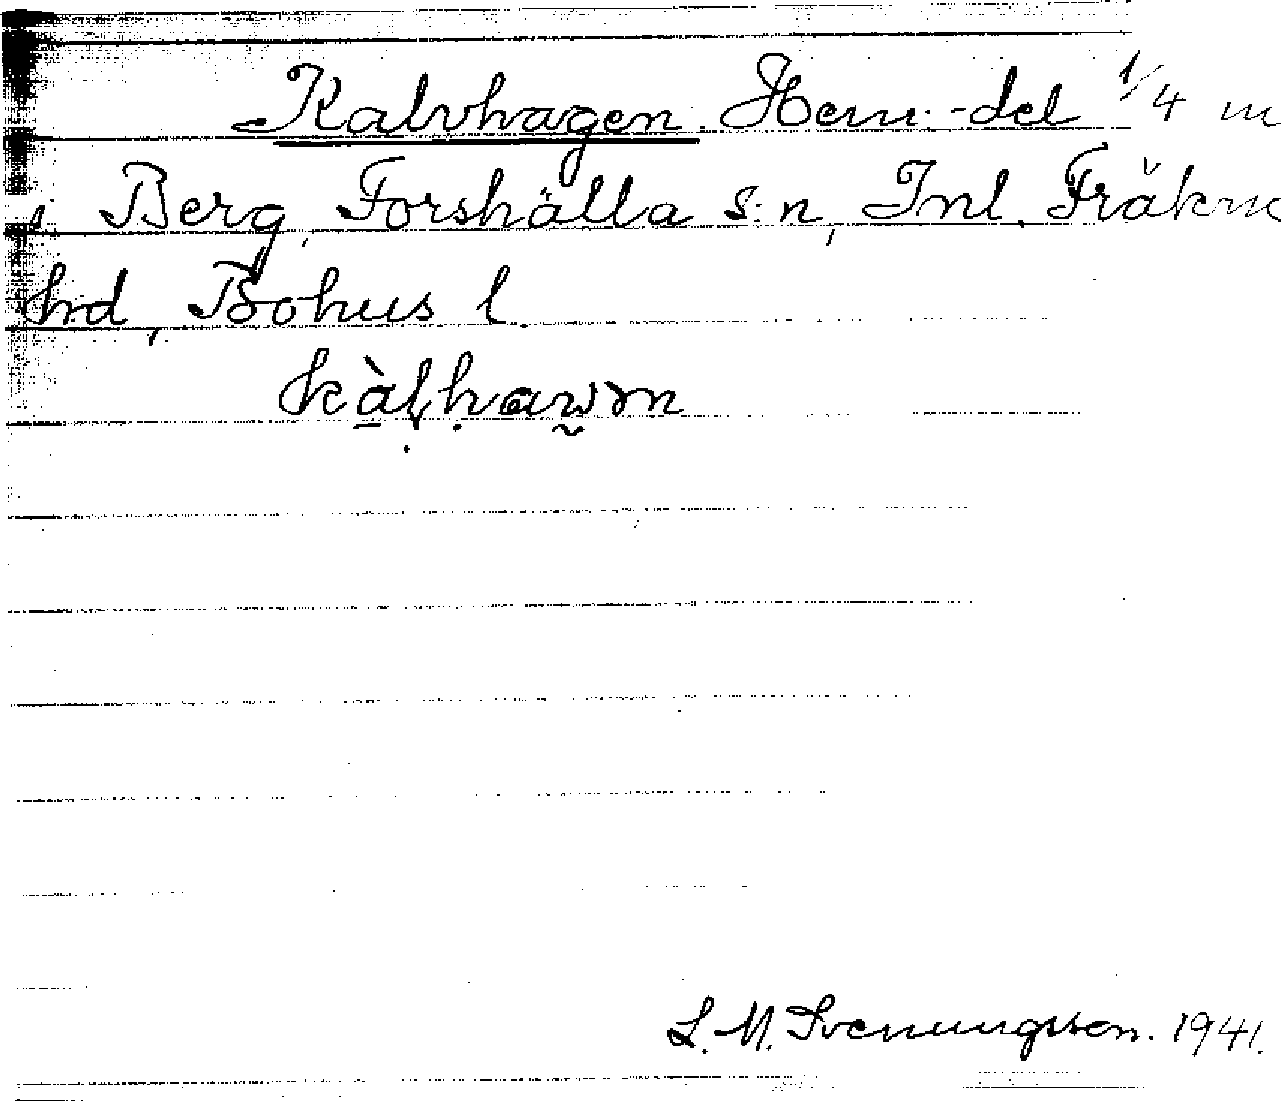 Kalvhagen. Hem.-del 1/4 m
i Berg, Forshälla s:n, Inl. Fräkne
hrd, Bohus l.
L. M. Svenungsson. 1941.